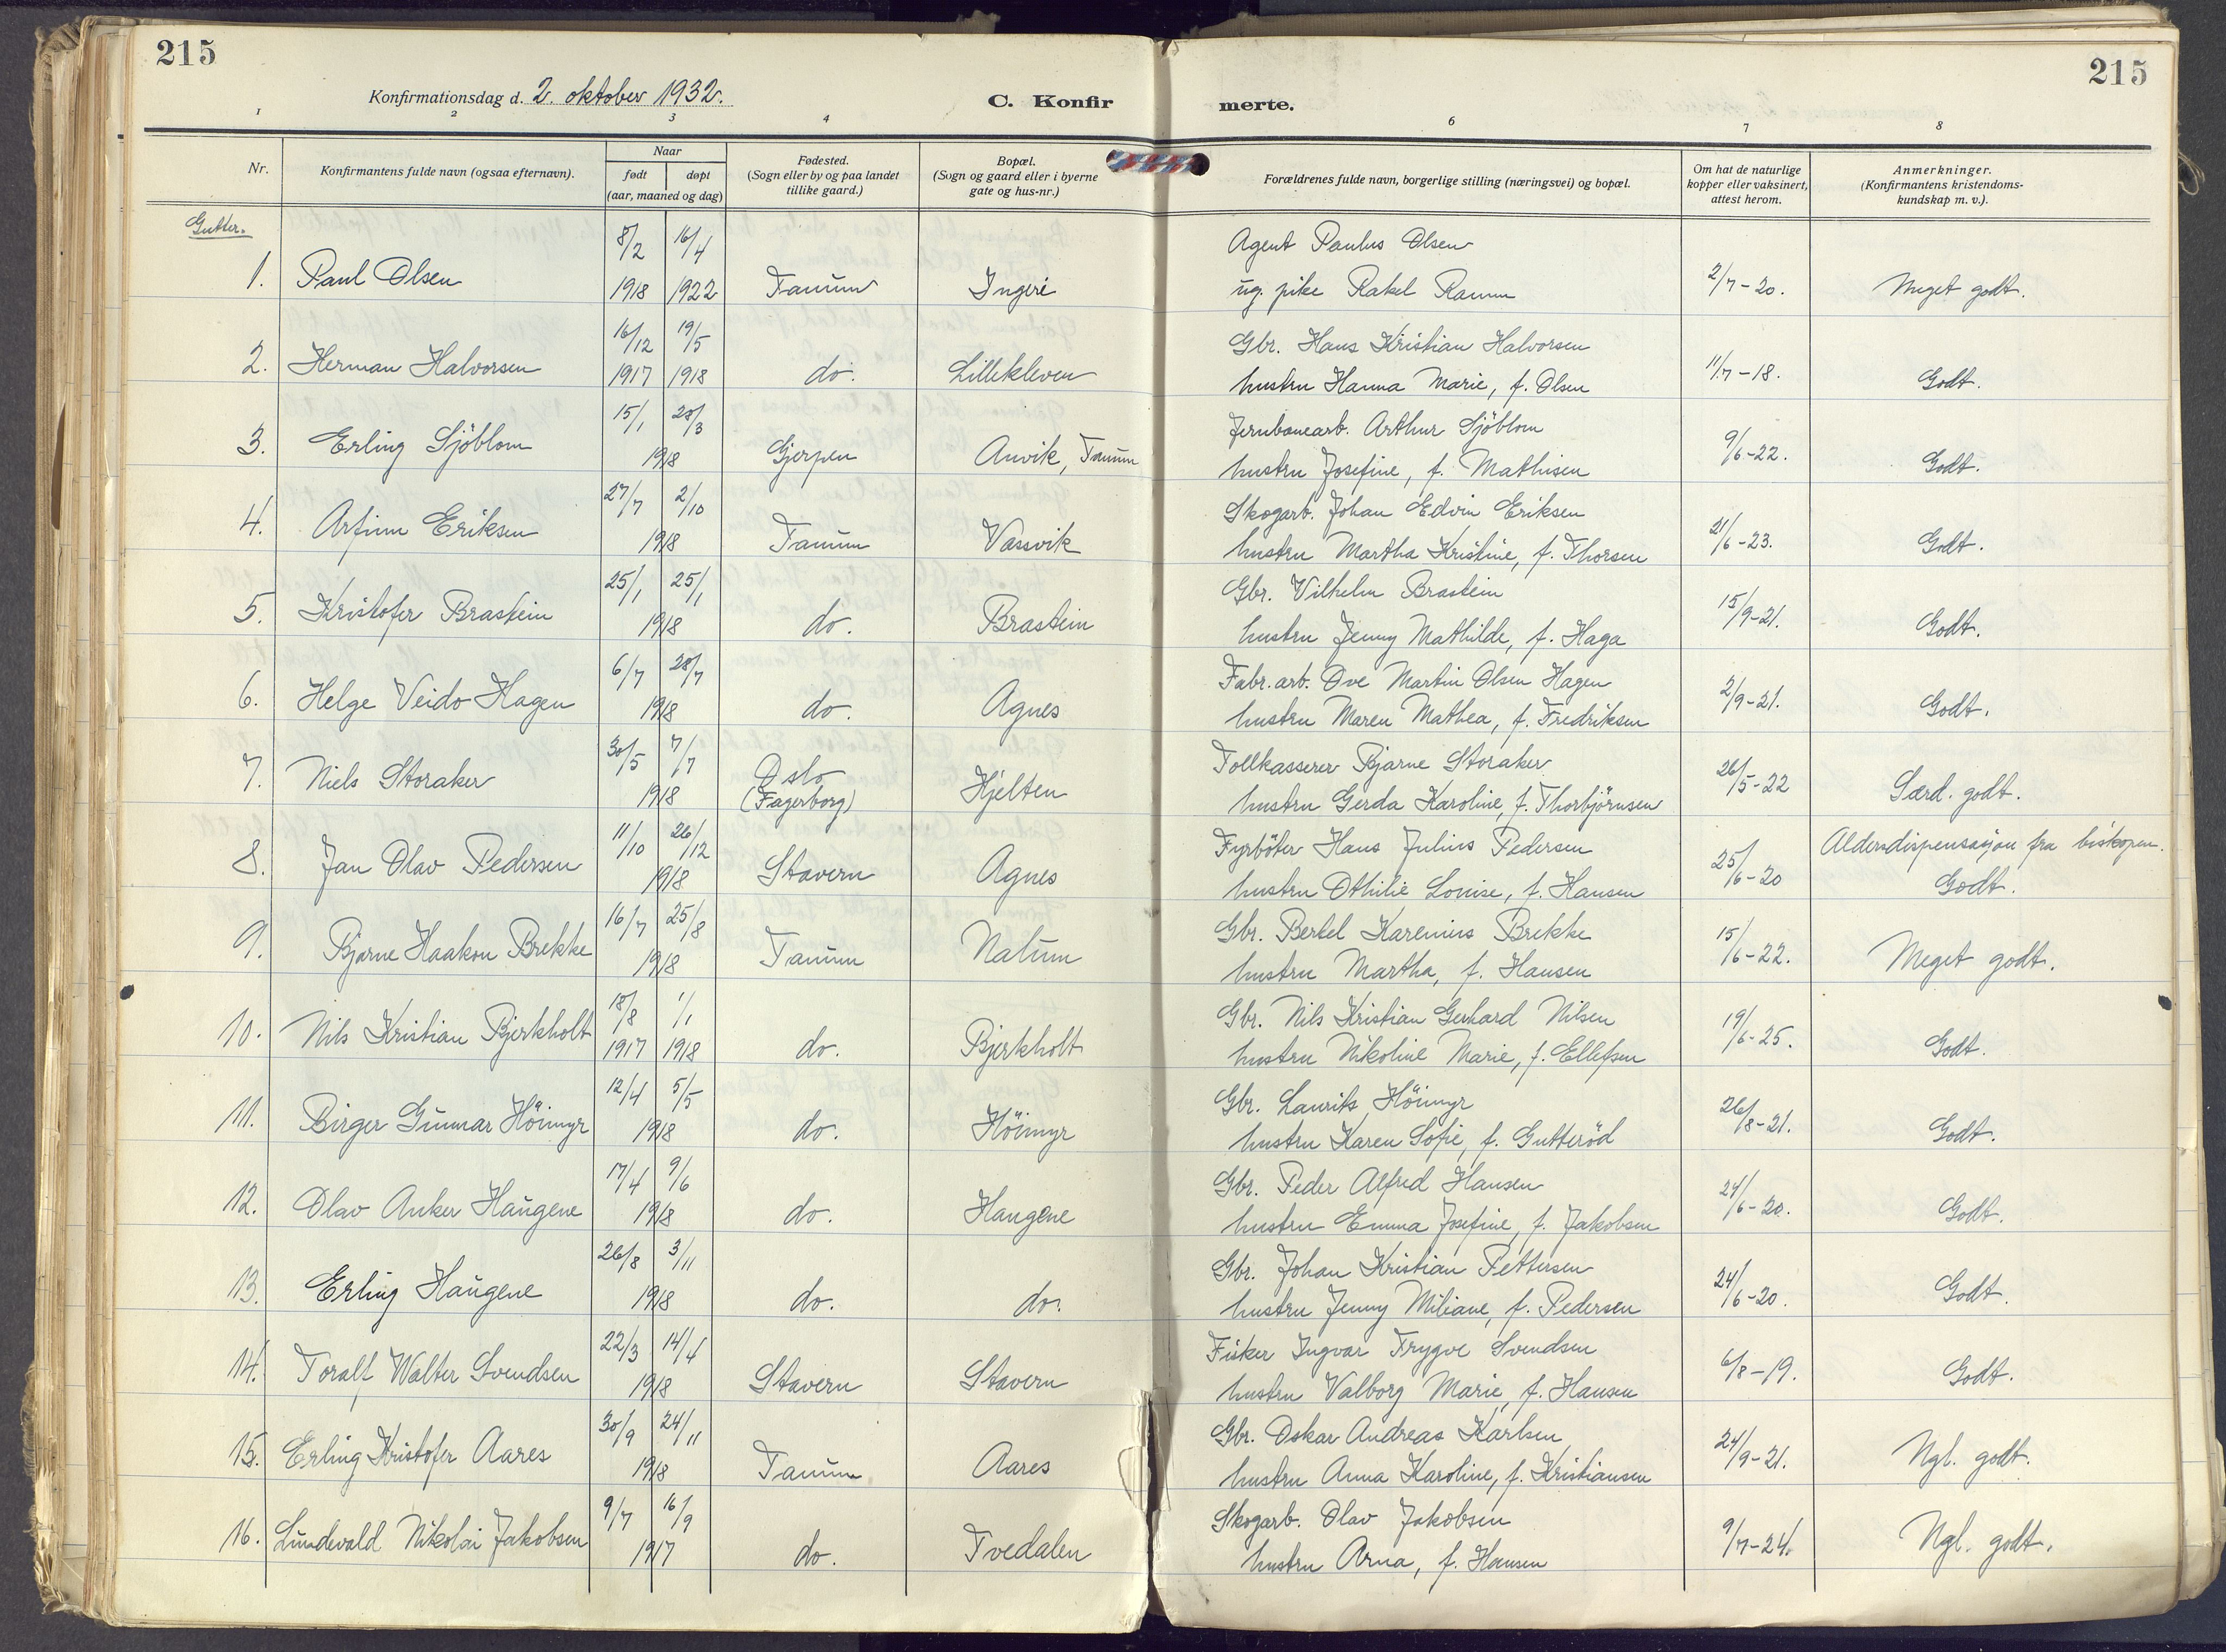 215
215
Konfirmationsdag d. 2. oktober 1932.
C. Konfir merte.
1 2 3 4 6 7 8
Nr.
Konfirmantens fulde navn (ogsaa efternavn).
Naar
født døpt
(aar, maaned og dag)
Fødested.
(Sogn eller by og paa landet
tillike gaard.)
Bopæl.
(Sogn og gaard eller i byerne
gate og hus-nr.)
Forældrenes fulde navn, borgerlige stilling (næringsvei) og bopæl.
Om hat de naturlige
kopper eller vaksinert,
attest herom.
Anmerkninger.
(Konfirmantens kristendoms-
kundskap m. v.).
Gutter.
8/2 16/4 Agent Paulus Olsen
1. Paul Olsen 1918 1922 Tanum Ingeri ug. pike Rakel Ramm 2/7-20. Meget godt.
16/12 19/5 Gbr. Hans Kristian Halvorsen
2. Herman Halvorsen 1917 1918 do. Lillekleven hustru Hanna Marie, f. Olsen 11/7-18. Godt.
15/1 28/3 Jernbanearb. Arthur Sjöblom
3. Erling Sjöblom 1918 Gjerpen Anvik, Tanum hustru Josefine, f. Mathisen 9/6-22. Godt.
27/7 2/10 Skogarb. Johan Edvin Eriksen
4. Arfinn Eriksen 1918 Tanum Vassvik hustru Martha Kristine, f. Thorsen 21/6-23. Godt.
25/1 25/1 Gbr. Vilhelm Brastein
5. Kristofer Brastein 1918 do. Brastein hustru Jenny Mathilde, f. Haga 15/9-21. Godt.
6/7 28/7 Fabr.arb. Ove Martin Olsen Hagen
6. Helge Veido Hagen 1918 do. Agnes hustru Maren Mathea, f. Fredriksen 2/9-21. Godt.
30/5 7/7 Tollkasserer Bjarne Storaker
7. Niels Storaker 1918 Oslo (Fagerborg) Hjelten hustru Gerda Karoline, f. Thorbjörnsen 26/5-22 Særd. godt.
11/10 26/12 Fyrböter Hans Julius Pedersen Aldersdispensasjon fra biskopen.
8. Jan Olav Pedersen 1918 Stavern Agnes hustru Othilie Louise, f. Hansen 25/6-20 Godt.
16/7 25/8 Gbr. Bertel Karenius Brekke
9. Bjarne Haakon Brekke 1918 Tanum Nalum hustru Martha, f. Hansen 15/6-22. Meget godt.
18/8 1/1 Gbr. Nils Kristian Gerhard Nilsen
10. Nils Kristian Bjerkholt 1917 1918 do. Bjerkholt hustru Nikoline Marie, f. Ellefsen 19/6-25. Godt.
12/4 5/5 Gbr. Laurits Höimyr
11. Birger Gunnar Höimyr 1918 do. Höimyr hustru Karen Sofie, f. Gutteröd 26/8-21. Godt.
17/4 9/6 Gbr. Peder Alfred Hansen
12. Olav Anker Haugene 1918 do. Haugene hustru Emma Josefine, f. Jakobsen 24/6-20. Godt.
26/8 3/11 Gbr. Johan Kristian Pettersen
13. Erling Haugene 1918 do. do. hustru Jenny Miliane, f. Pedersen 24/6-20. Godt.
22/3 14/4 Fisker Ingvar Trygve Svendsen
14. Toralf Walter Svendsen 1918 Stavern Stavern hustru Valborg Marie, f. Hansen 6/8-19. Godt.
30/9 24/11 Gbr. Oskar Andreas Karlsen
15. Erling Kristofer Aares 1918 Tanum Aares hustru Anna Karoline, f. Kristiansen 24/9-21. Ngl. godt.
9/7 16/9 Skogarb. Olav Jakobsen
16. Lundevald Nikolai Jakobsen 1917 do. Tvedalen hustru Arna, f. Hansen 9/7-24. Ngl. godt.